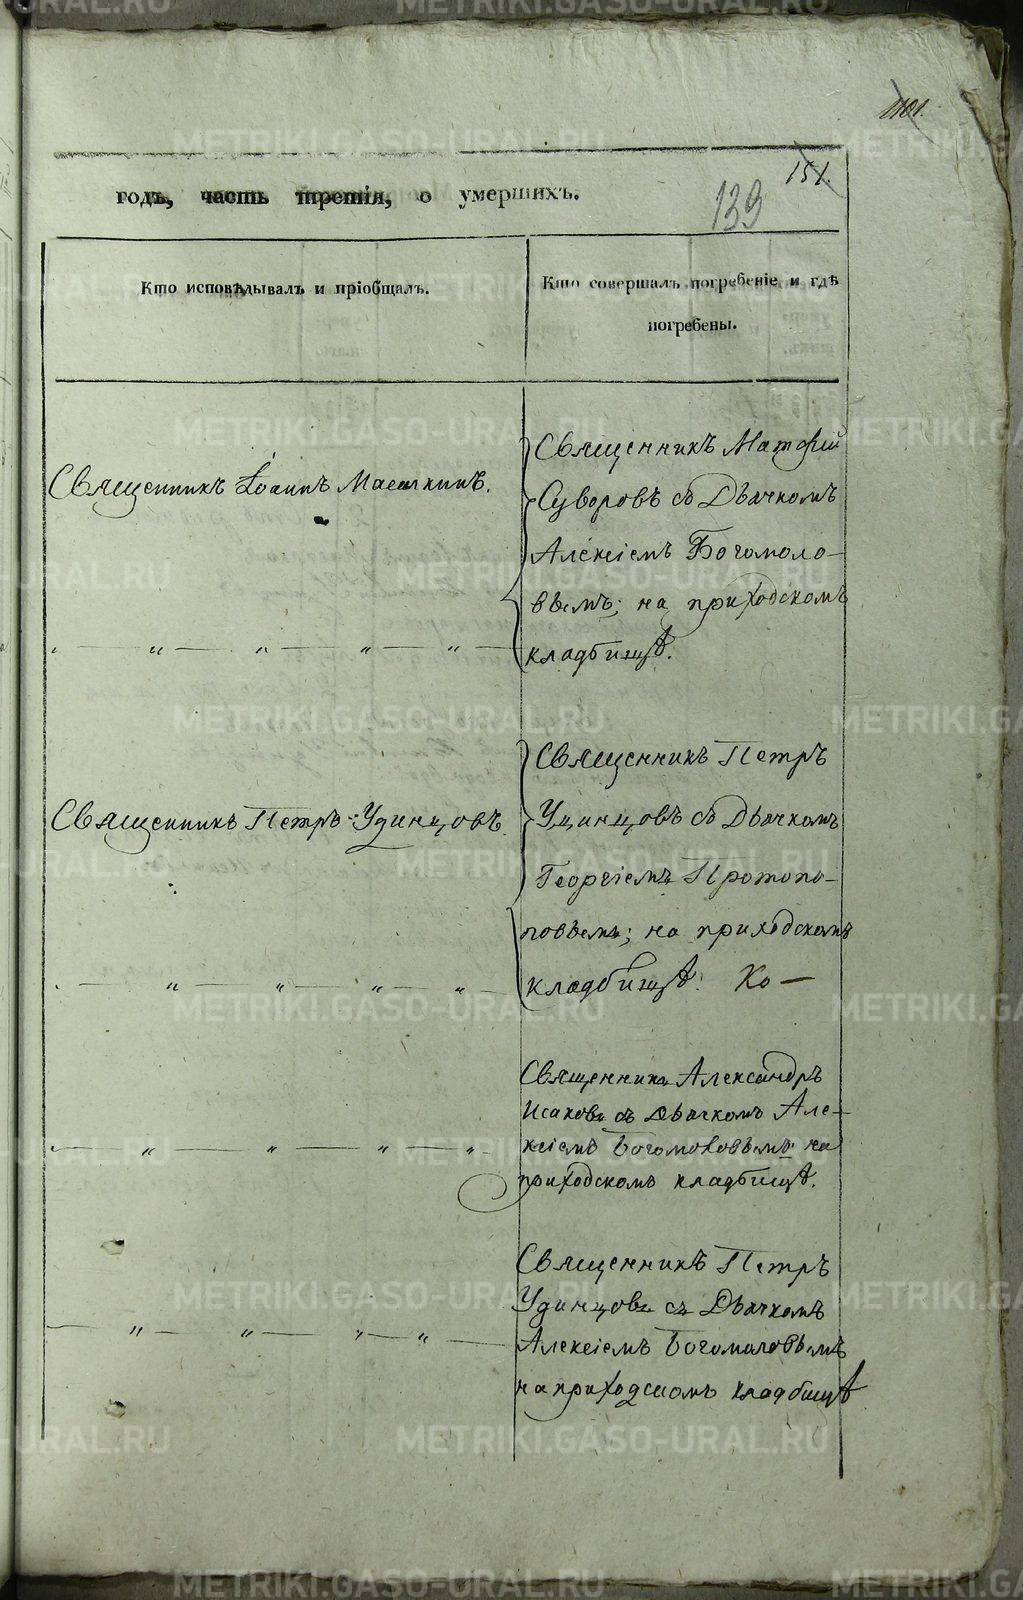 1181.
151.
139
годъ, часть третія, о умершихъ.
Кто исповѣдывалъ и пріобщалъ.
Кто совершалъ погребеніе и гдѣ
погребены.
Священникъ Іоаннъ
Священникъ Матфій
Суворовъ съ Дьячкомъ
Алексіемъ Богомоло-
вымъ; на приходскомъ
" — " — " — " — " —
кладбищѣ.
Священникъ Петръ Удинцовъ.
Священникъ Петръ
Удинцовъ съ Дьячкомъ
Георгіемъ Протопо-
повымъ; на приходскомъ
" — " — " — " — " —
кладбищѣ. Ко —
Священникъ Александръ
Исаковъ съ Дьячкомъ Але-
" — " — " — " — " —
ксіемъ Богомоловымъ на
приходскомъ кладбищѣ.
Священникъ Петръ
Удинцовъ съ Дьячкомъ
— " — " — " — " —
Алексіемъ Богомоловымъ
на приходскомъ кладбищѣ
METRIKI.GASO-URAL.RU